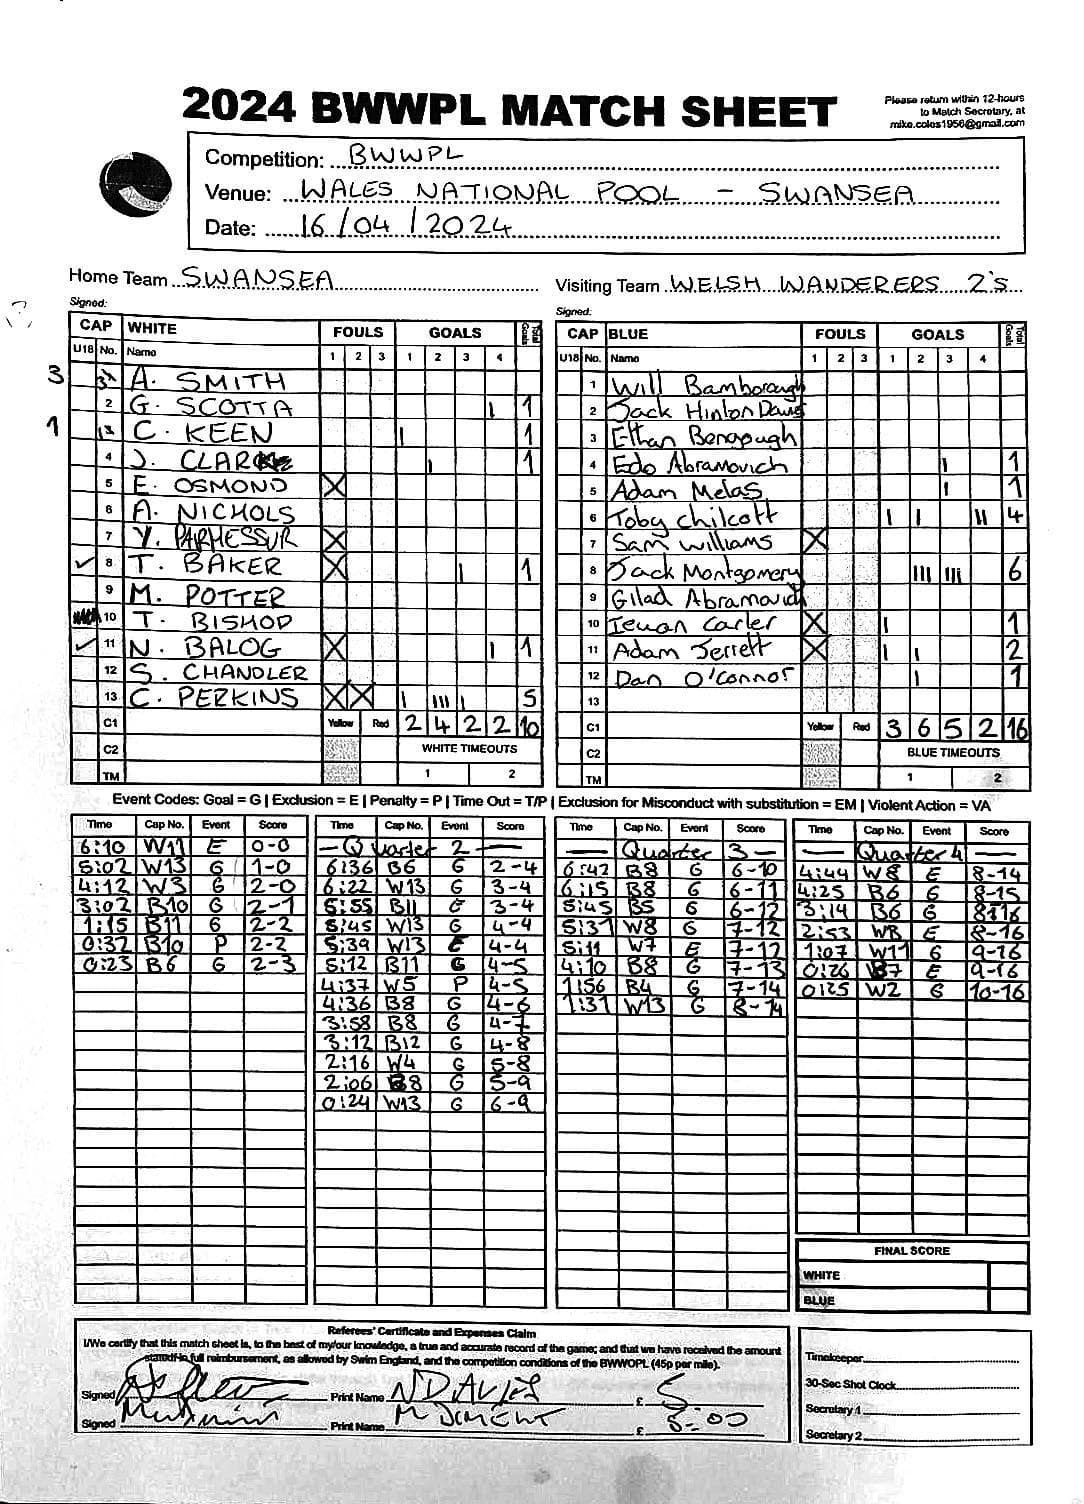 2024 BWWPL MATCH SHEET
Please return within 12-hours
to Match Secretary, at
mike.coles1956@gmail.com
Competition: BWWPL
Venue: WALES NATIONAL POOL - SWANSEA
Date: 16/04/2024
Home Team SWANSEA
Visiting Team WELSH WANDERERS 2's
Signed:
Signed:
CAP WHITE FOULS GOALS Total Goals
U18 No. Name 1 2 3 1 2 3 4
3 A. SMITH
2 G. SCOTTA 1 1
1 13 C. KEEN 1 1
4 J. CLARK 1 1
5 E. OSMOND X
6 A. NICHOLS
7 Y. PARMESSUR X
8 T. BAKER X 1 1
9 M. POTTER
10 T. BISHOP
11 N. BALOG X 1 1
12 S. CHANDLER
13 C. PERKINS X X I III I 5
C1 Yellow Red 2 4 2 2 10
C2 WHITE TIMEOUTS
TM 1 2
CAP BLUE FOULS GOALS Total Goals
U18 No. Name 1 2 3 1 2 3 4
1 Will Bamborough
2 Jack Hinton Davis
3 Ethan Benopugh
4 Edo Abramovich I 1
5 Adam Melas I 1
6 Toby Chilcott I I II 4
7 Sam Williams X
8 Jack Montgomery III III 6
9 Gilad Abramovich
10 Ieuan Carter X I 1
11 Adam Jerrett X I I 2
12 Dan O'Connor I 1
13
C1 Yellow Red 3 6 5 2 16
C2 BLUE TIMEOUTS
TM 1 2
Event Codes: Goal = G | Exclusion = E | Penalty = P | Time Out = T/P | Exclusion for Misconduct with substitution = EM | Violent Action = VA
Time Cap No. Event Score
6:10 W11 E 0-0
5:02 W13 G 1-0
4:12 W3 G 2-0
3:02 B10 G 2-1
1:15 B11 G 2-2
0:32 B10 P 2-2
0:23 B6 G 2-3
Time Cap No. Event Score
- Quarter 2 -
6:36 B6 G 2-4
6:22 W13 G 3-4
5:55 B11 E 3-4
5:45 W13 G 4-4
5:39 W13 E 4-4
5:12 B11 G 4-5
4:37 W5 P 4-5
4:36 B8 G 4-6
3:58 B8 G 4-7
3:12 B12 G 4-8
2:16 W4 G 5-8
2:06 B8 G 5-9
0:24 W13 G 6-9
Time Cap No. Event Score
- Quarter 3 -
6:42 B8 G 6-10
6:15 B8 G 6-11
5:45 B5 G 6-12
5:31 W8 G 7-12
5:11 W7 E 7-12
4:10 B8 G 7-13
1:56 B4 G 7-14
1:31 W13 G 8-14
Time Cap No. Event Score
- Quarter 4 -
4:44 W8 E 8-14
4:25 B6 G 8-15
3:14 B6 G 8-16
2:53 W8 E 8-16
1:07 W11 G 9-16
0:26 B7 E 9-16
0:25 W2 G 10-16
FINAL SCORE
WHITE
BLUE
Referees' Certificate and Expenses Claim
I/We certify that this match sheet is, to the best of my/our knowledge, a true and accurate record of the game; and that we have received the amount
stated in full reimbursement, as allowed by Swim England, and the competition conditions of the BWWOPL (45p per mile).
Signed Print Name N DAVIES £ 5
Signed Print Name M DIMENT £ 5-00
Timekeeper
30-Sec Shot Clock
Secretary 1
Secretary 2